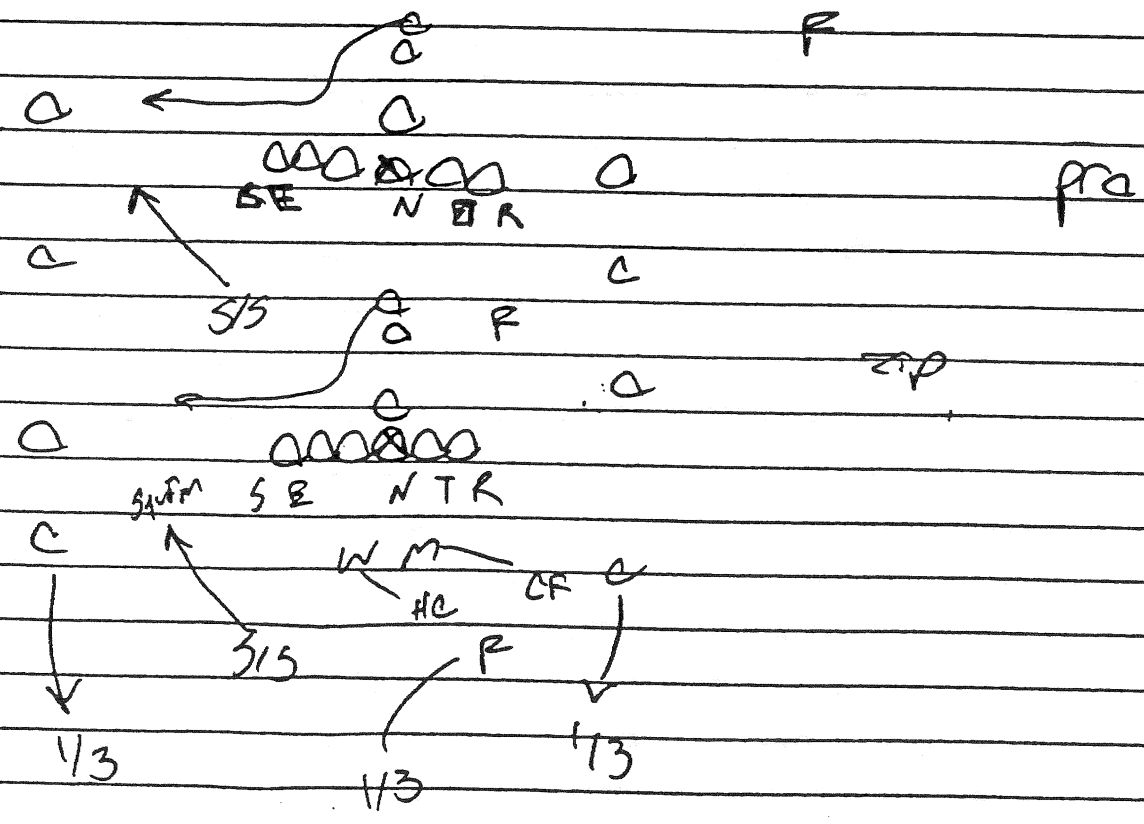 F
S E N T R
pro
C C
S/S F
zip
S E N T R
C W M C
HC CF
S/S F
1/3 1/3
1/3